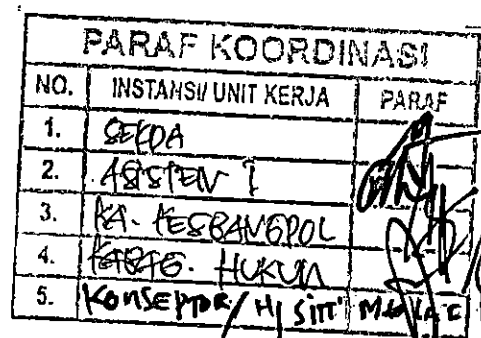 PARAF KOORDINASI
NO. INSTANSI/ UNIT KERJA PARAF
1. SEKDA
2. ASISTEN I
3. KA. KESBANGPOL
4. KABAG. HUKUM
5. KONSEPTOR / Hj SITI